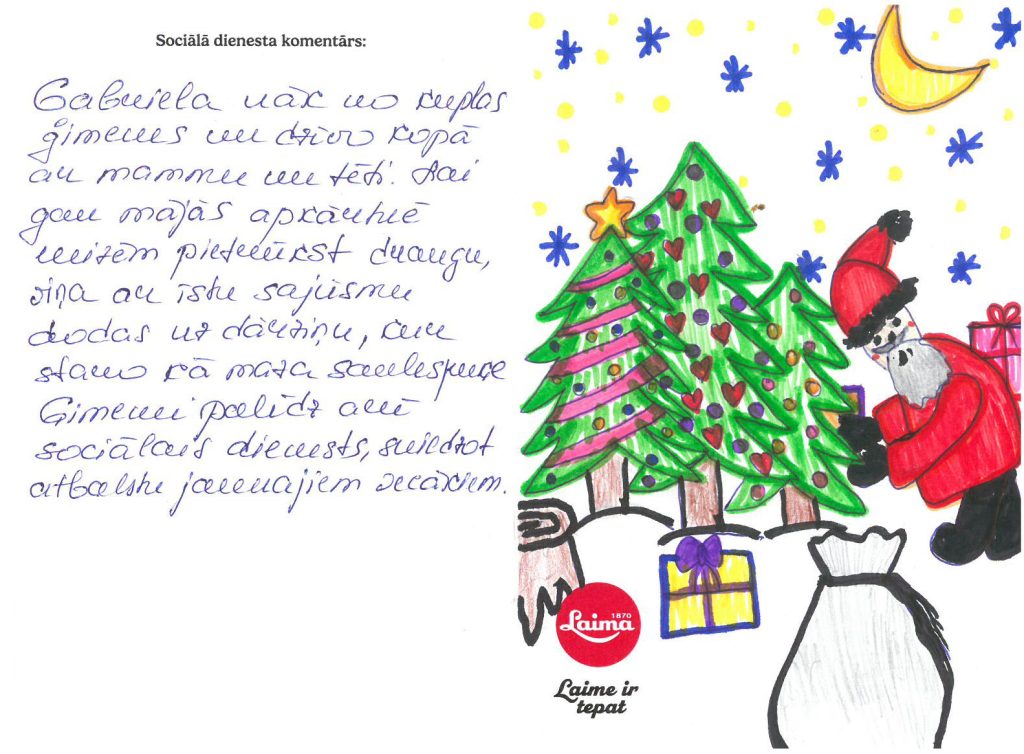 Sociālā dienesta komentārs:
Gabriela nāk no kuplas
ģimenes un dzīvo kopā
ar mammu un tēti. Lai
gan mājās apkārtnē
mizēm pietrūkst draugu,
viņa ar īstu sajūsmu
dodas uz dārziņu, kur
staro kā maza saulespuķe
Ģimenei palīdz arī
sociālais dienests, sniedzot
atbalstu jaunajiem vecākiem.
1870
Laima
Laime ir
tepat